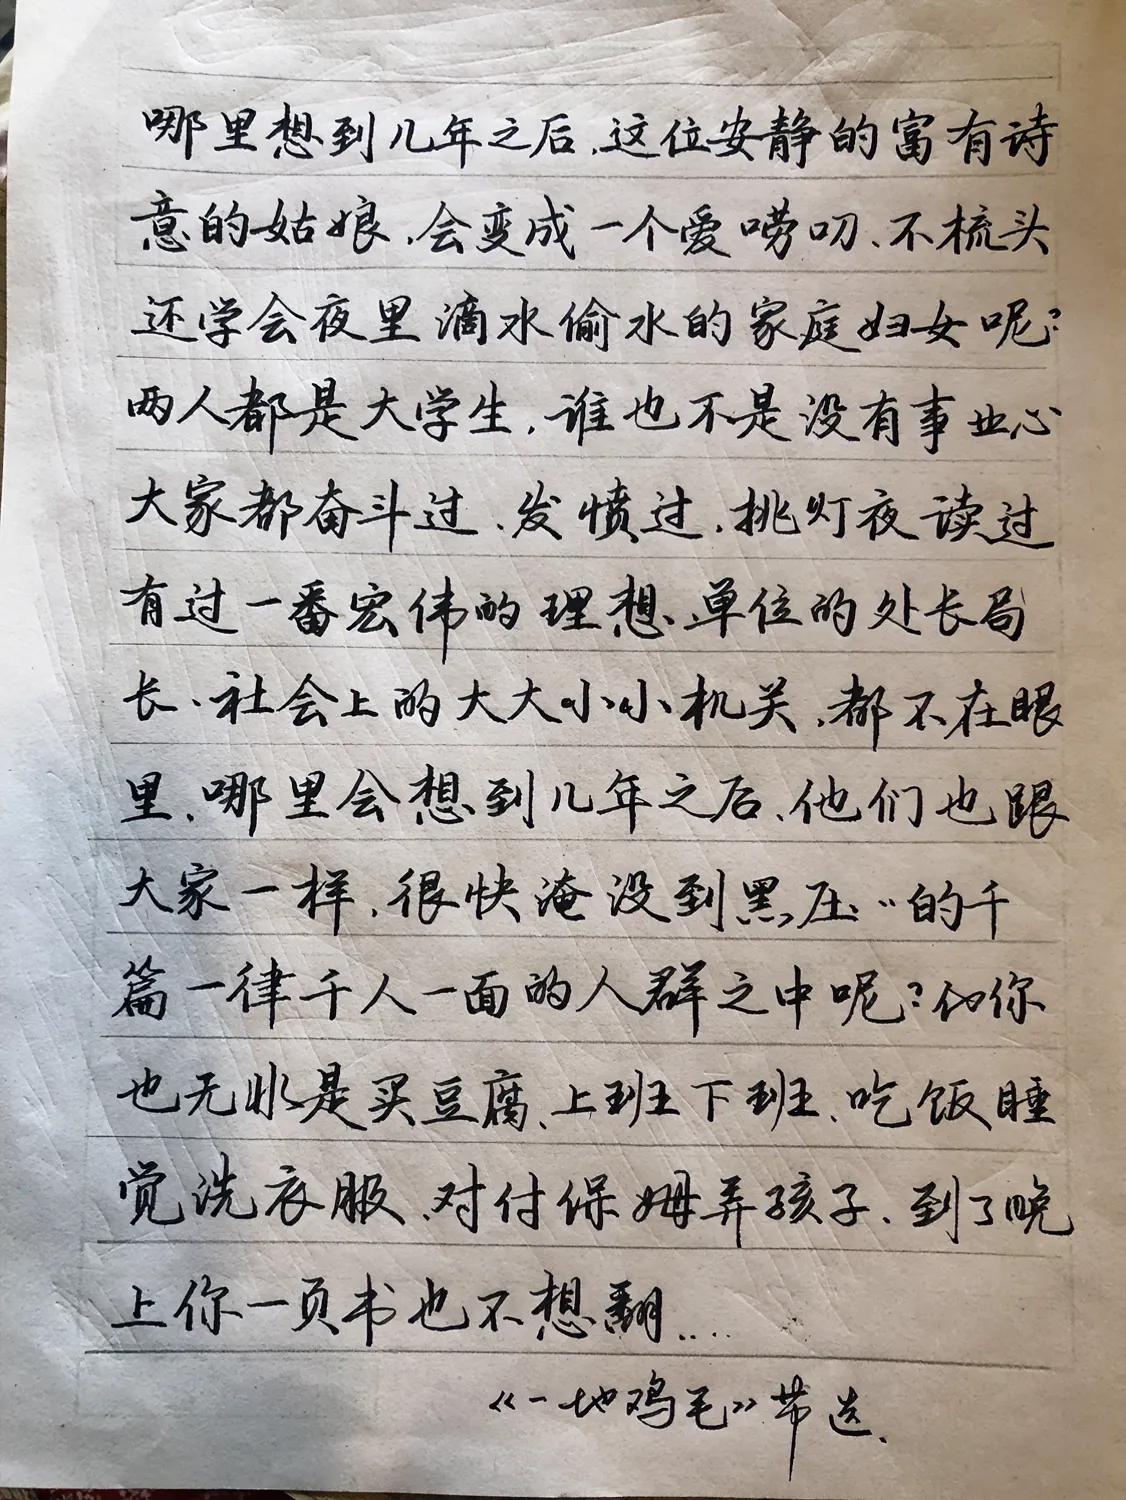 哪里想到几年之后,这位安静的富有诗
意的姑娘,会变成一个爱唠叨、不梳头
还学会夜里滴水偷水的家庭妇女呢?
两人都是大学生,谁也不是没有事业心
大家都奋斗过、发愤过,挑灯夜读过
有过一番宏伟的理想、单位的处长局
长、社会上的大大小小机关,都不在眼
里,哪里会想到几年之后,他们也跟
大家一样,很快淹没到黑压㆑的千
篇一律千人一面的人群之中呢?你
也无非是买豆腐、上班下班、吃饭睡
觉洗衣服、对付保姆弄孩子、到了晚
上你一页书也不想翻....
《一地鸡毛》节选.